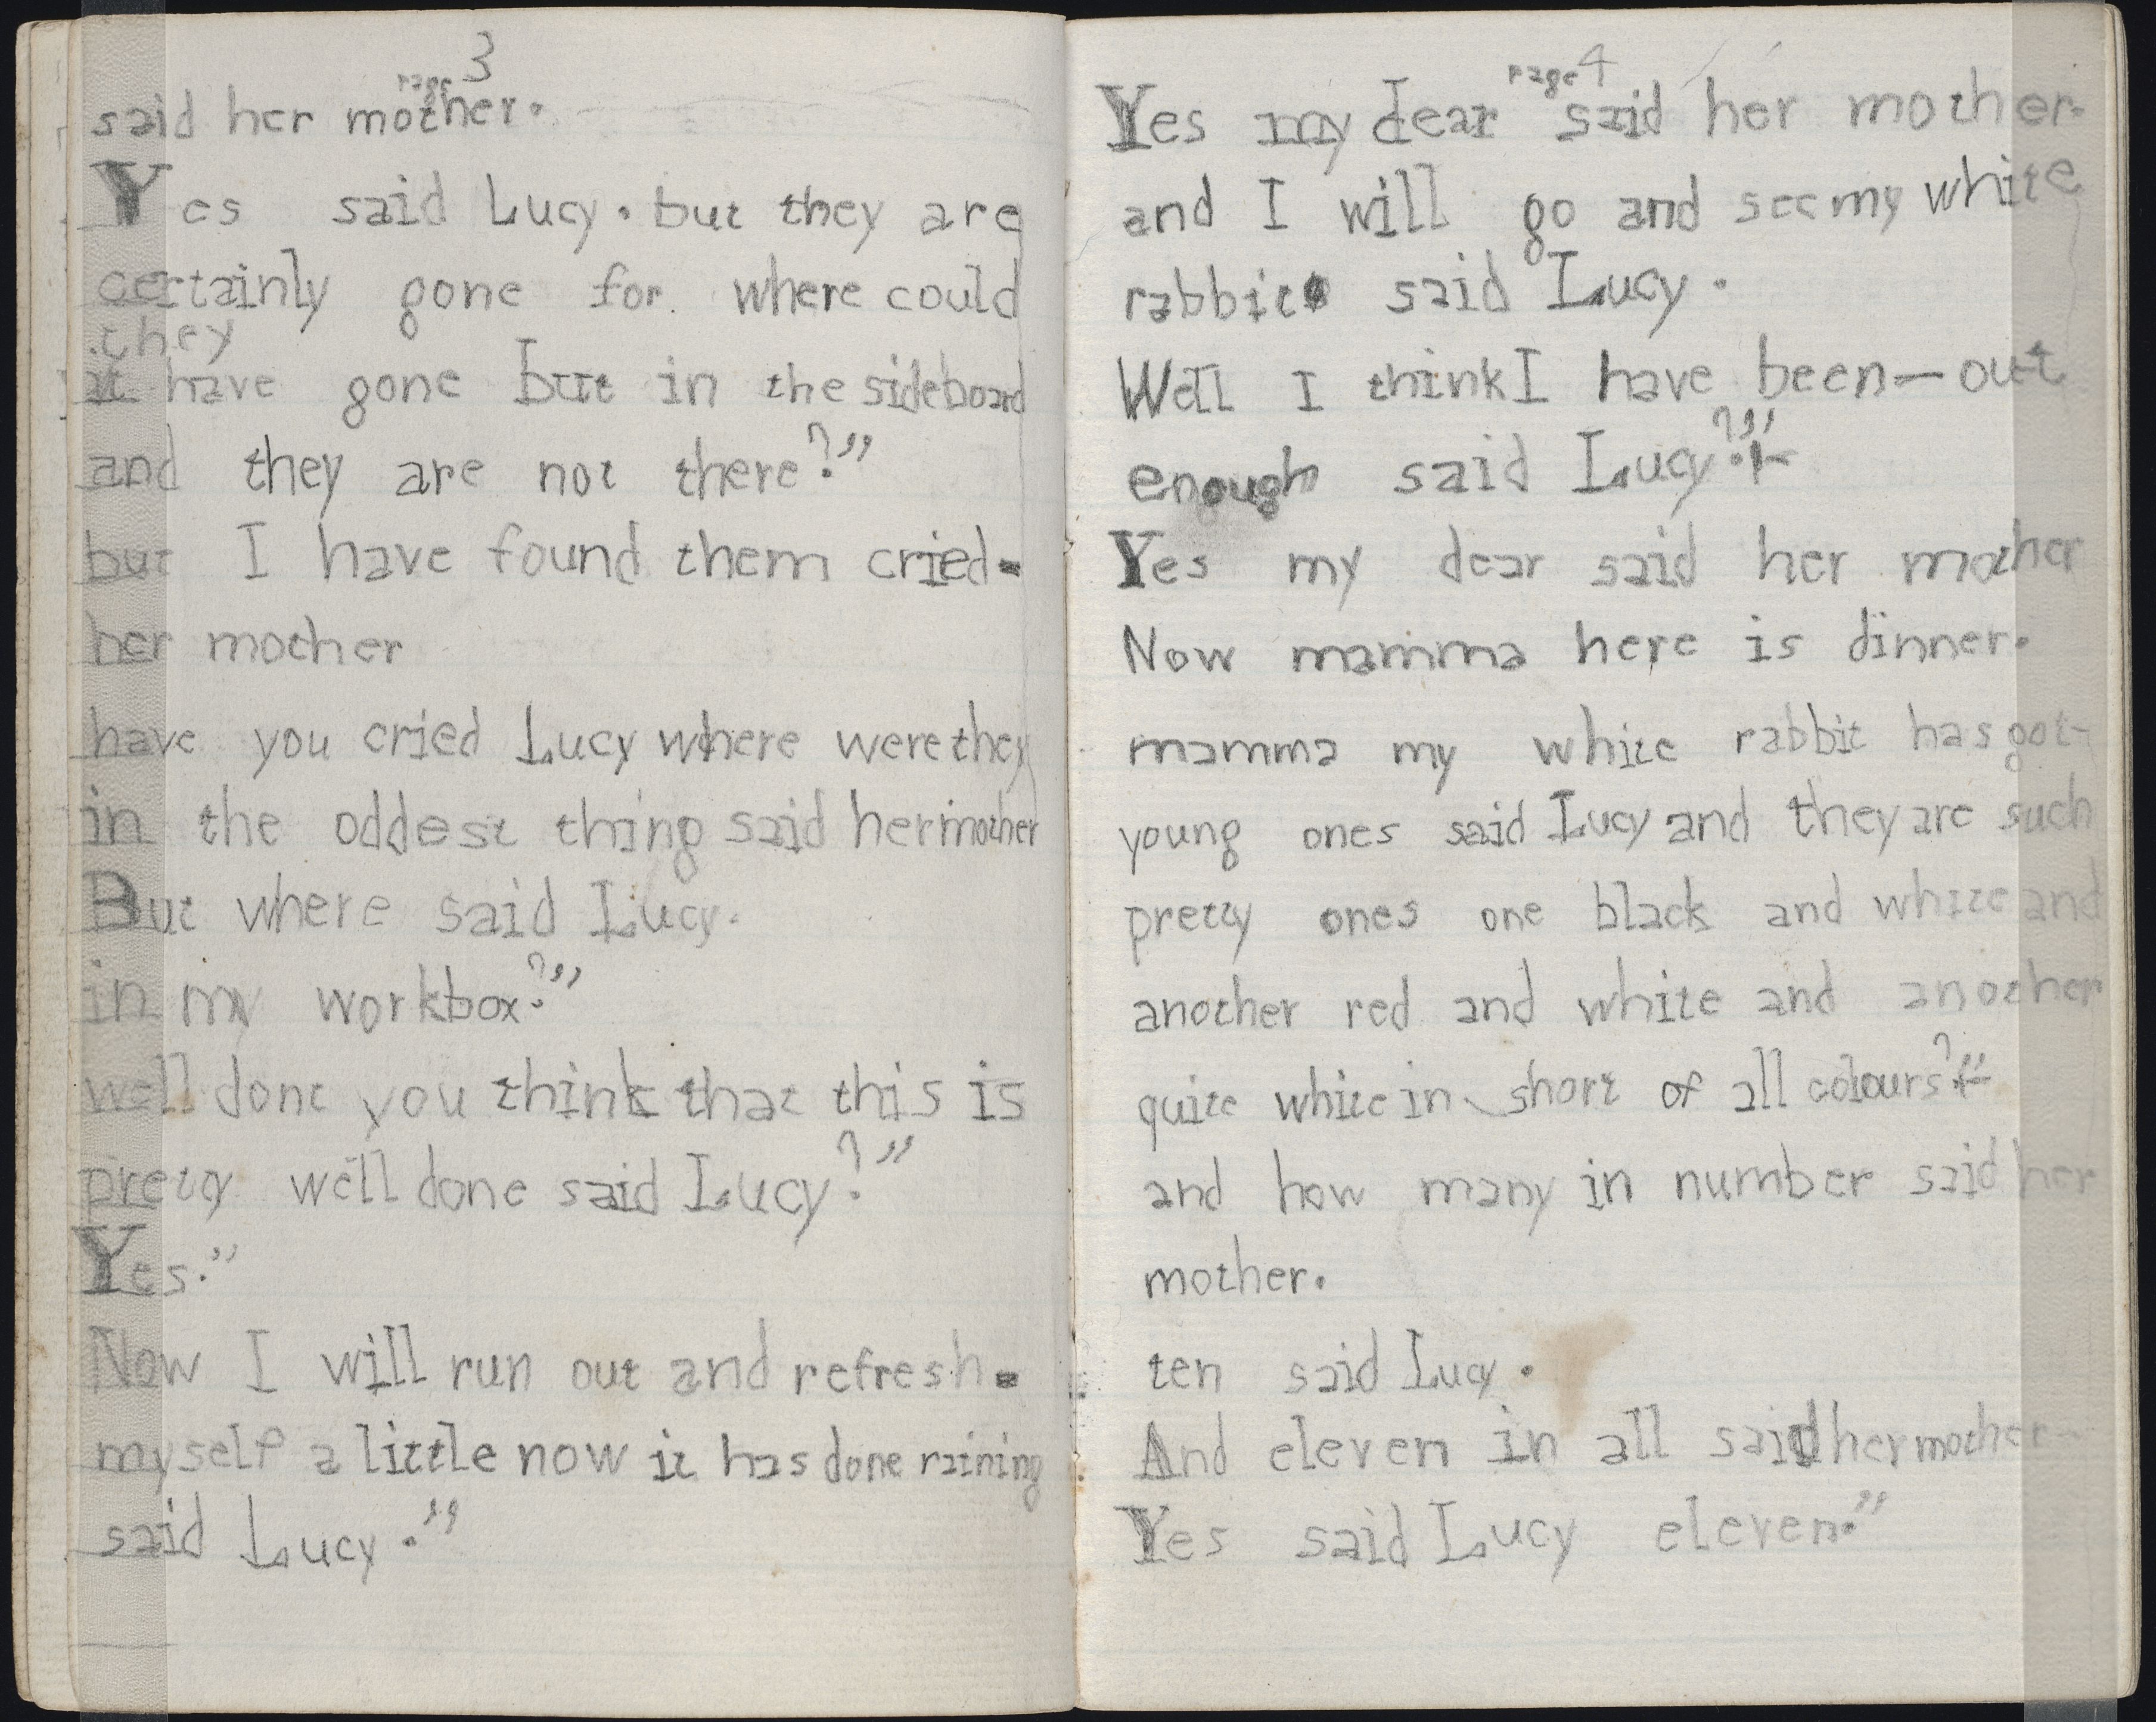 page 3
said her mother.
Yes said Lucy. but they are
certainly gone for where could
they
it have gone but in the sideboard
and they are not there?"
but I have found them cried-
her mother
have you cried Lucy where were they
in the oddest thing said her mother
But where said Lucy.
in my workbox?"
well done you think that this is
pretty well done said Lucy?"
Yes."
Now I will run out and refresh-
myself a little now it has done raining
said Lucy."
page 4
Yes my dear said her mother-
and I will go and see my white
rabbit said Lucy.
Well I think I have been-out
enough said Lucy?"
Yes my dear said her mother
Now mamma here is dinner.
mamma my white rabbit has got-
young ones said Lucy and they are such
pretty ones one black and white and
another red and white and another
quite white in short of all colours?"
and how many in number said her
mother.
ten said Lucy.
And eleven in all said her mother
Yes said Lucy eleven."